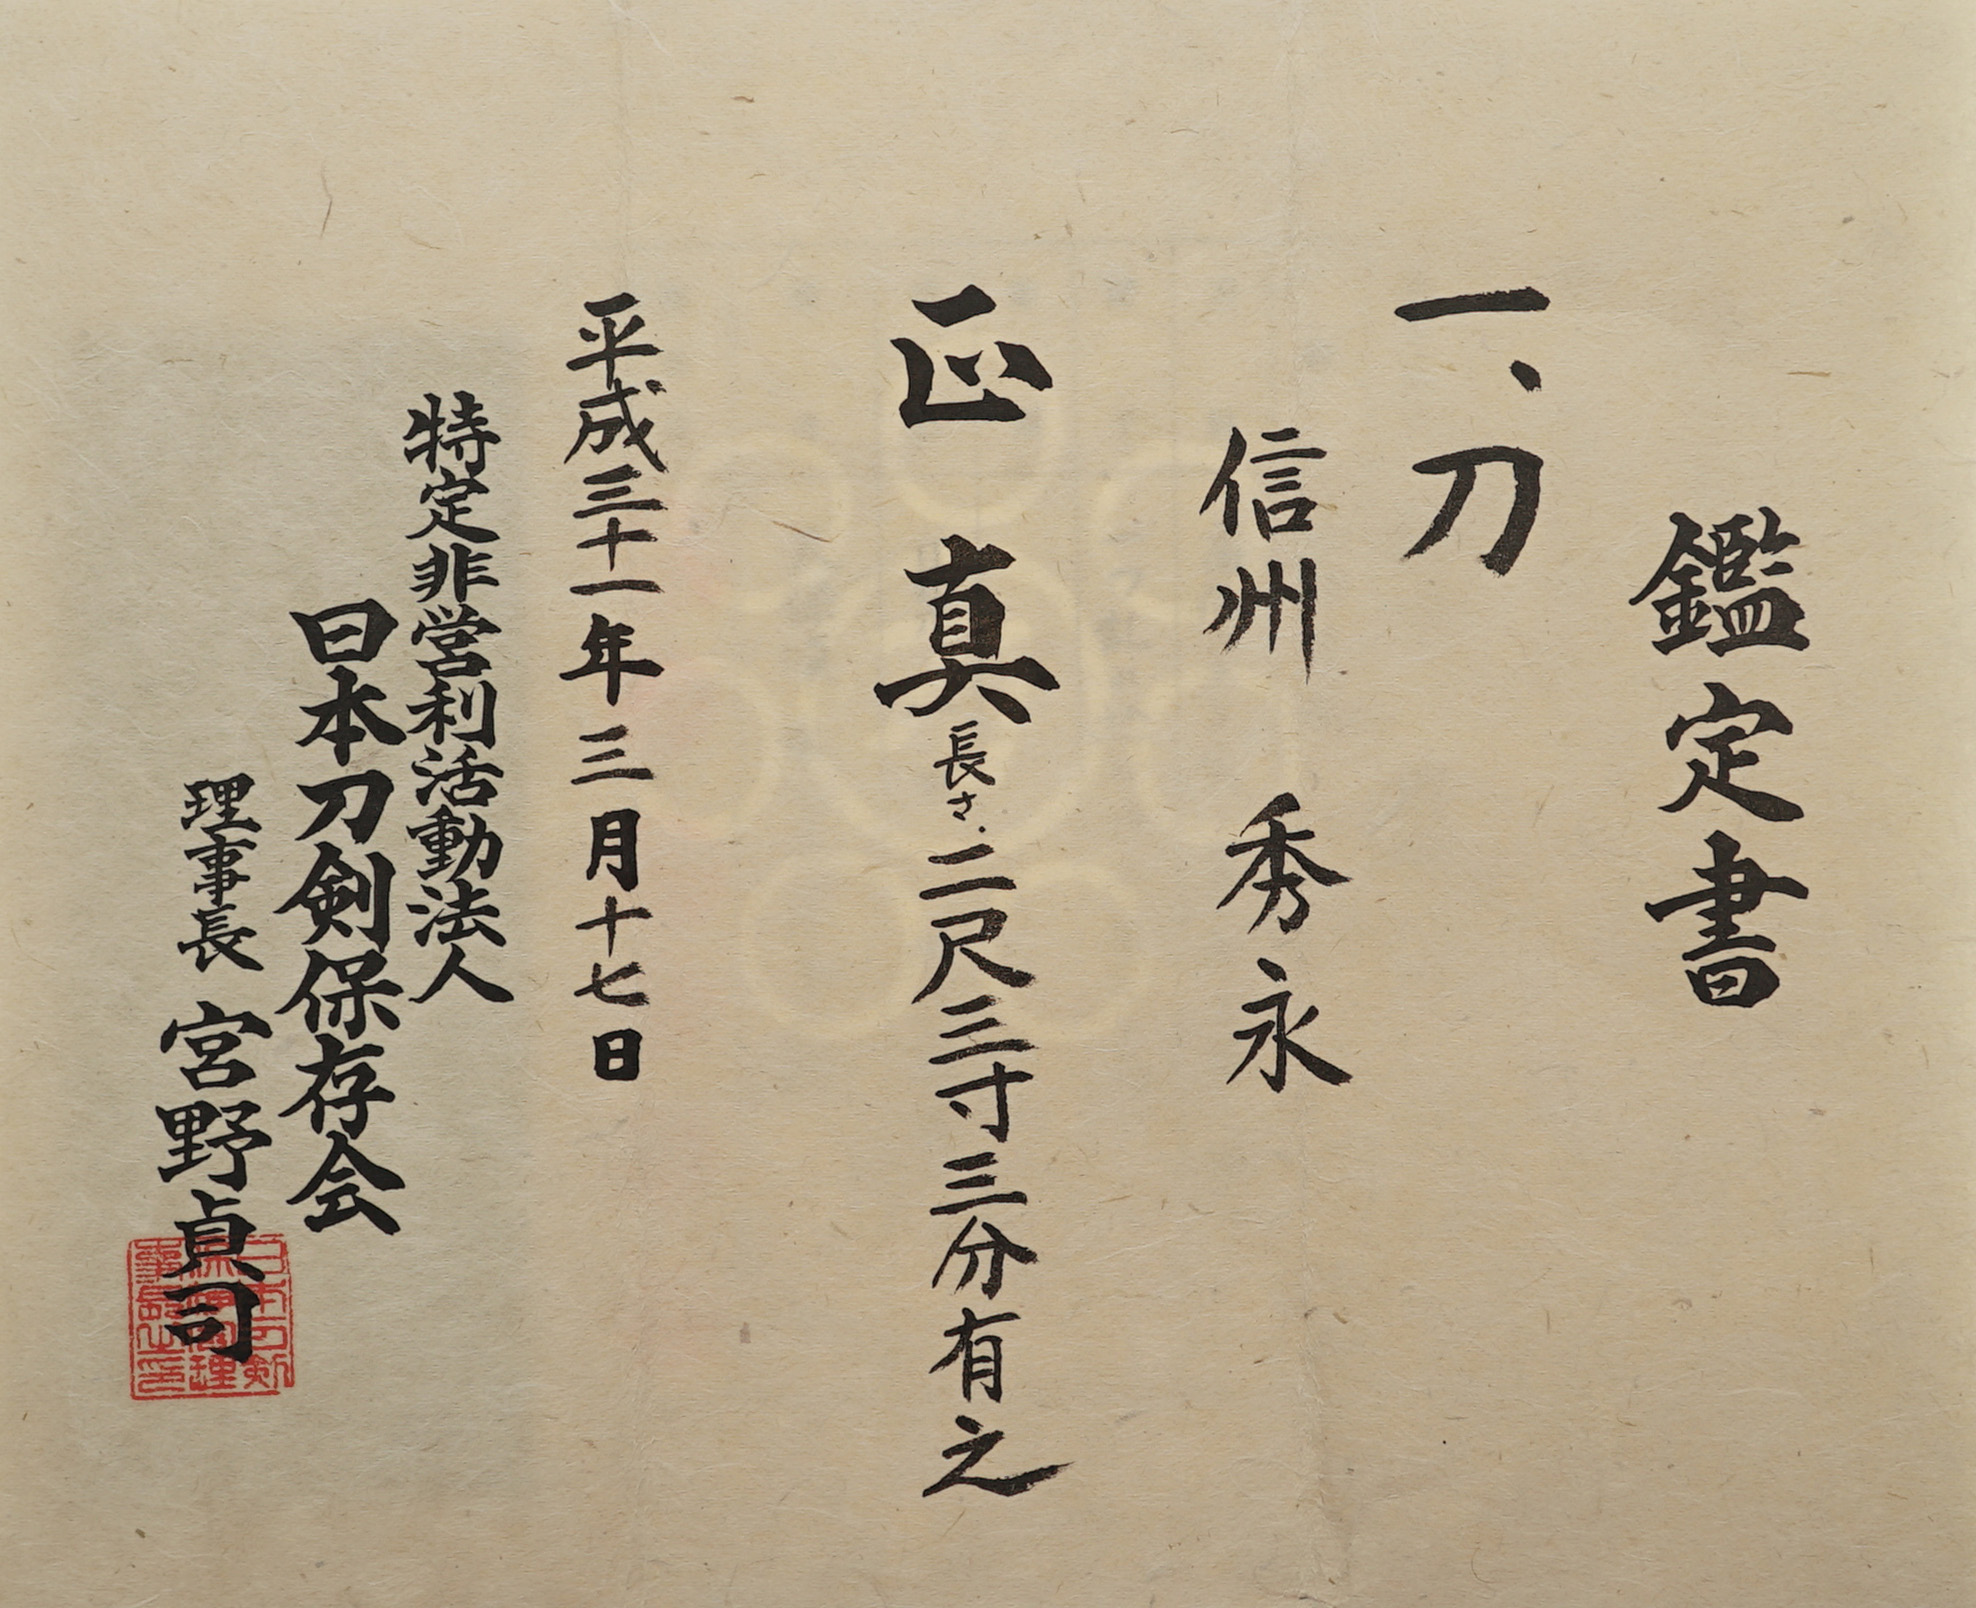 鑑定書
一、刀
信州 秀永
正真 長さ、二尺三寸三分有之
平成三十一年三月十七日
特定非営利活動法人
日本刀剣保存会
理事長 宮野貞司